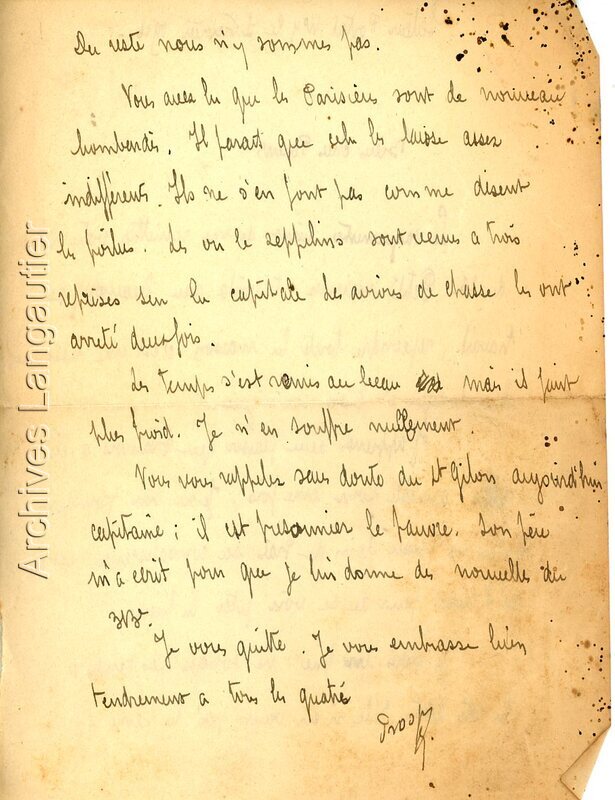 Du reste nous n'y sommes pas.
Vous avez lu que les Parisiens sont de nouveau
bombardés. Il parait que cela les laisse assez
indifférents. Ils ne s'en font pas comme disent
les poilus. Les ou le zeppelins sont venus a trois
reprises sur la capitale des avions de chasse les ont
arreté deux fois.
Les temps s'est remis au beau mais il fait
plus froid. Je n'en souffre nullement.
Vous vous rappelez sans doute du Lt Gilon aujourd'hui
capitaine ; il est prisonnier le pauvre. Son père
m'a ecrit pour que je lui donne des nouvelles du
313e.
Je vous quitte. Je vous embrasse bien
tendrement a tous les quatre
Archives Langautier